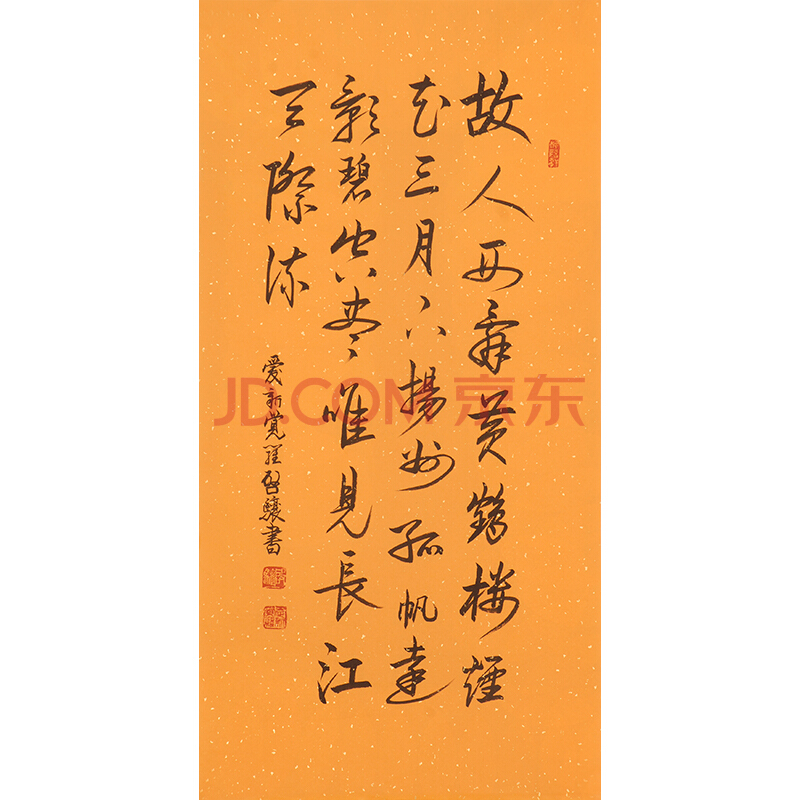 故人西辞黄鶴楼煙
花三月下揚州孤帆遠
影碧空尽唯見長江
天際流
愛新覚羅啓驤書
JD.COM 京东